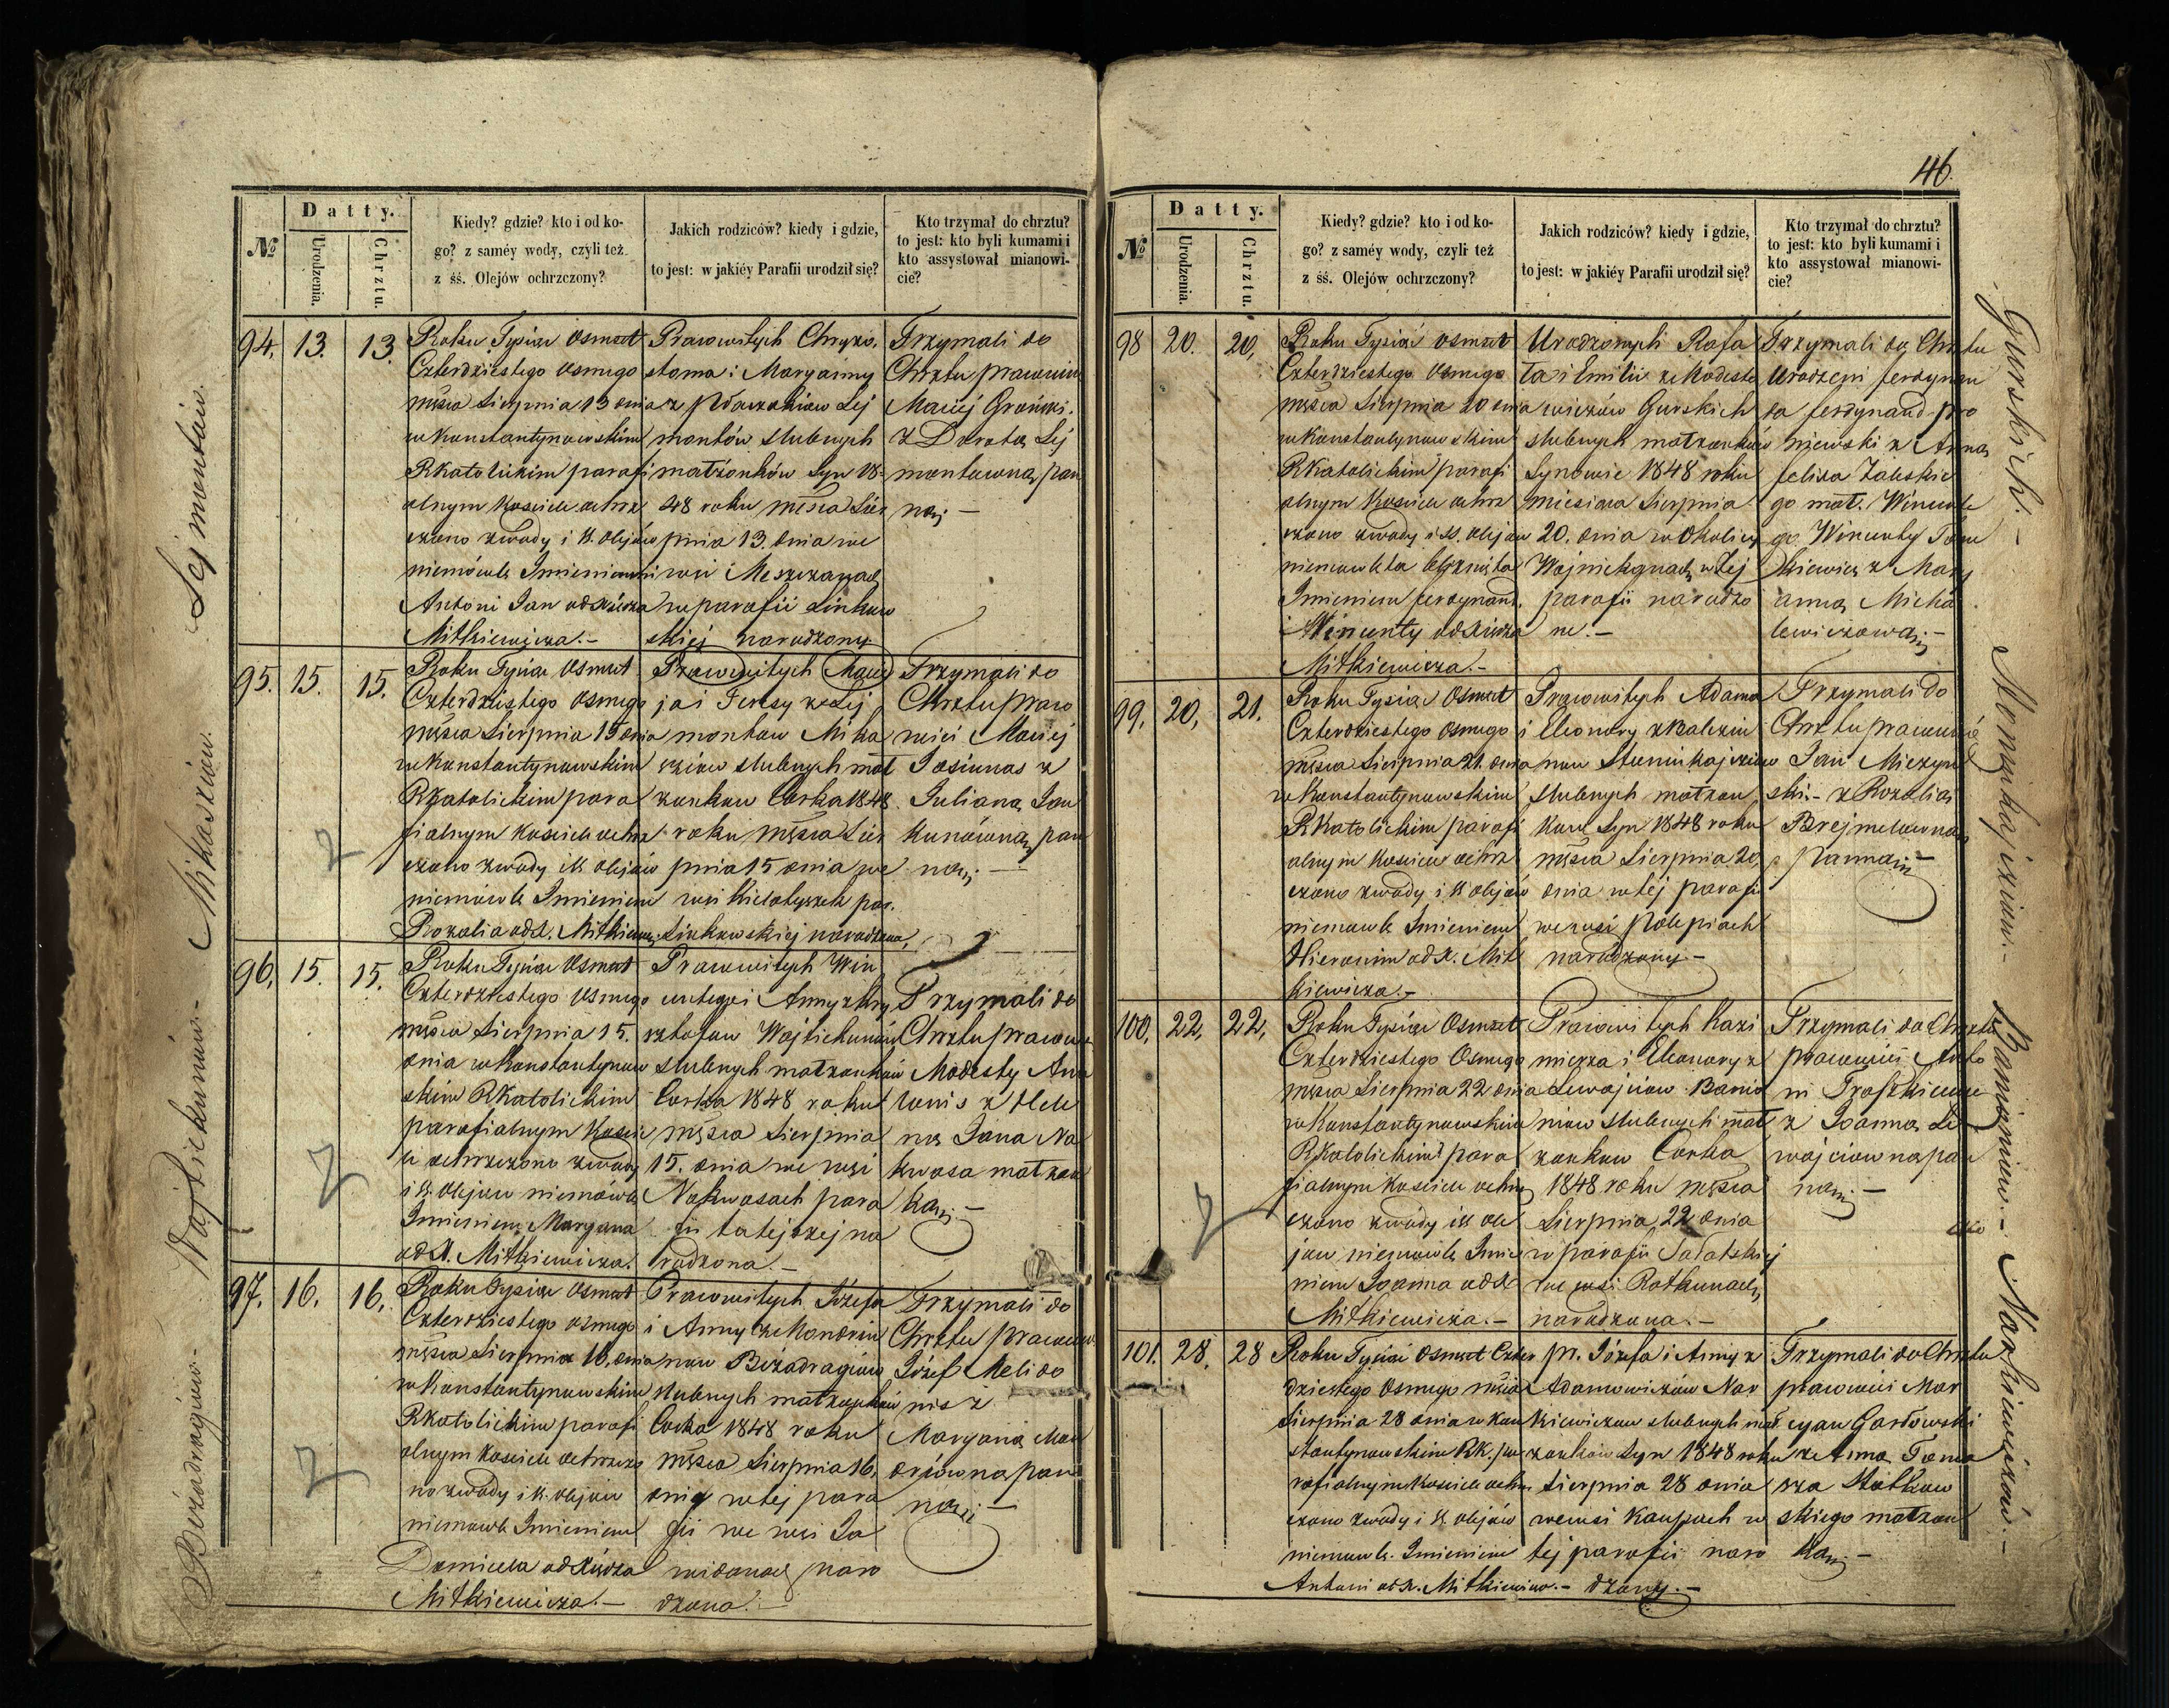 Sejmontów.
Mikaszów.
Wajtiekunów.-
Bezadragów.-
Datty.
№
Urodzenia.
Chrztu.
Kiedy? gdzie? kto i od ko-
go? z saméy wody, czyli też
z śś. Olejów ochrzczony?
Jakich rodziców? kiedy i gdzie,
to jest: w jakiéy Parafii urodził się?
Kto trzymał do chrztu?
to jest: kto byli kumami i
kto assystował mianowi-
cie?
94. 13. 13.
Roku Tysiąc Osmset
Czterdziestego Osmego
mśsca Sierpnia 13 dnia
w Konstantynowskim
RKatolickim parafi
alnym Kosciele ochrz
czono zwody i śś. olejów
niemówle Imieniem
Antoni Jan od Xiędza
Mitkiewicza.-
Prawowitych Chryzo.
stoma i Maryanny
z Sej
montów slubnych
małżonków Syn 18-
48 roku mśsca Sier
pnia 13. dnia we
wsi
w parafii Linkow
skiej narodzony.
Trzymali do
Chrztu prawowici
Maciej
z Dorotą Sej
montowną pan
ną.-
95. 15. 15.
Roku Tysiąc Osmset
Czterdziestego Osmego
mśsca Sierpnia 15 dnia
w Konstantynowskim
RKatolickim para
fialnym Kosciele ochrz
czono zwody i śś olejów
niemówle Imieniem
Rozalia od X. Mitkiewi.
Prawowitych Macie
ja i Teresy z Sej
montow Mika
szów slubnych mał
zonkow Corka 1848
roku mśsca Sier
pnia 15 dnia we
wsi par.
Linkowskiej narodzona.
Trzymali do
Chrztu praw
wici Maciej
Josiunas z
Julianą Jan
kunówną pan
ną.-
96. 15. 15.
Roku Tysiąc Osmset
Czterdziestego Osmego
mśsca Sierpnia 15.
dnia w Konstantynow
skim RKatolickim
parafialnym Kosciele
ochrzczono zwody
i śś. olejow niemówle
Imieniem Maryana
od X. Mitkiewicza.
Prawowitych Win
centego i Anny z Kry
sztofow Wajtiekunów
slubnych małzonków
Corka 1848 roku
mśsca Sierpnia
15. dnia we wsi
Nakwosach para
fii tutejszej na
rodzona.-
Trzymali do
Chrztu prawowici
Modesty
z Hele
ną Jana Na
kwosa małzon
ką.-
97. 16. 16.
Roku Tysiąc Osmset
Czterdziestego Osmego
mśsca Sierpnia 16. dnia
w Konstantynowskim
RKatolickim parafi
alnym Kosciele ochrzczo
no zwody i śś. olejow
niemowle Imieniem
Domicella od Xiędza
Mitkiewicza.-
Prawowitych Józefa
i Anny
now Bezadragiów
slubnych małzonków
Corka 1848 roku
mśsca Sierpnia 16.
dnia w tej para
fii we wsi Da
widanach naro
dzona.-
Trzymali do
Chrztu prawowici
Józef Melido
nis z
Maryaną
pan
ną.-
46.
Datty.
№
Urodzenia.
Chrztu.
Kiedy? gdzie? kto i od ko-
go? z saméy wody, czyli też
z śś. Olejów ochrzczony?
Jakich rodziców? kiedy i gdzie,
to jest: w jakiéy Parafii urodził się?
Kto trzymał do chrztu?
to jest: kto byli kumami i
kto assystował mianowi-
cie?
98 20. 20,
Roku Tysiąc Osmset
Czterdziestego Osmego
mśsca Sierpnia 20 dnia
w Konstantynowskim
RKatolickim parafi
alnym Kosciele ochrz
czono zwody i śś. olejow
niemowleta bliznięta
Imieniem Ferdynand.
i Wincenty od Xiędza
Mitkiewicza.-
Urodzonych Rafa
ła i Emilii z Modeste
wiczów Gurskich
slubnych małzonków
Synowie 1848 roku
miesiaca Sierpnia
20. dnia w Okolicy
w tej
parafii narodzo
ne.-
Trzymali do Chrztu
Urodzeni Ferdynan
da Ferdynand
z Anną
Felixa Zaleskie
go mał. Wincente
go Wincenty Tom
kiewicz z Mary
anną Micha
lewiczową.-
99. 20, 21.
Roku Tysiąc Osmset
Czterdziestego Osmego
mśsca Sierpnia 21. dnia
w Konstantynowskim
RKatolickim parafi
alnym Kosciele ochrz
czono zwody i śś olejów
niemowle Imieniem
Hieronim od X. Mit
kiewicza.-
Prawowitych Adama
i Eleonory z Balczu
now
slubnych małzon
kow Syn 1848 roku
mśsca Sierpnia 20
dnia w tej parafii
we wsi Polepiach
narodzony.-
Trzymali do
Chrztu prawowici
Jan Miczyn
ski.- z Rozalią
Brejmelowną
panną.-
100, 22, 22,
Roku Tysiąc Osmset
Czterdziestego Osmego
mśsca Sierpnia 22 dnia
w Konstantynowskim
RKatolickim para
fialnym Kosciele ochrz
czono zwody i śś ole
jow niemowle Imie
niem Joanna od X
Mitkiewicza.-
Prawowitych Kazi
mierza i Eleonory z
Lewojciow Banio
niow slubnych mał
zonkow Corka
1848 roku mśsca
Sierpnia 22 dnia
w parafii Sałatskiej
we wsi Rotkunach
narodzona.-
Trzymali do Chrztu
prawowici Anto
ni
z Joanną Le
wojciowną pan
ną.-
101. 28. 28
Roku Tysiąc Osmset Czter
dziestego Osmego mśsca
Sierpnia 28 dnia w Kon
stantynowskim RK. pa
rafialnym Kosciele ochrz
czono zwody i śś. olejów
niemowle. Imieniem
Antoni od X. Mitkiewicz.-
pr. Józefa i Anny z
Adamowiczów Nar
kiewiczow slubnych mał
zonków Syn 1848 roku
Sierpnia 28 dnia
we wsi Kaupach w
tej parafii naro
dzony.-
Trzymali do Chrztu
prawowici Mar
cyan Gasłowski
z Anną Toma
sza
skiego małzon
ką.-
Gurskich.-
Baniuniow.-
Narkiewiczów.-